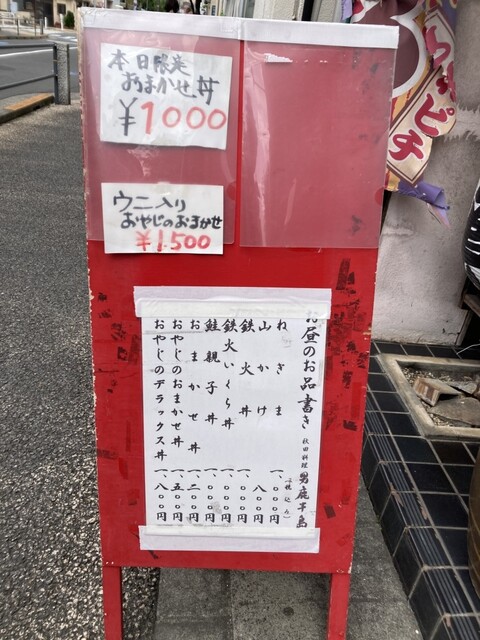 本日限定
おまかせ丼
¥1000
ウニ入り
おやじのおまかせ
¥1.500
お昼のお品書き 秋田料理 男鹿半島
(税込み)
ねぎま 一、〇〇〇円
山かけ 八〇〇円
鉄火丼 一、〇〇〇円
鉄火いくら丼 一、〇〇〇円
鮭親子丼 一、〇〇〇円
おまかせ丼 一、二〇〇円
おやじのおまかせ丼 一、五〇〇円
おやじのデラックス丼 一、八〇〇円
ピチ